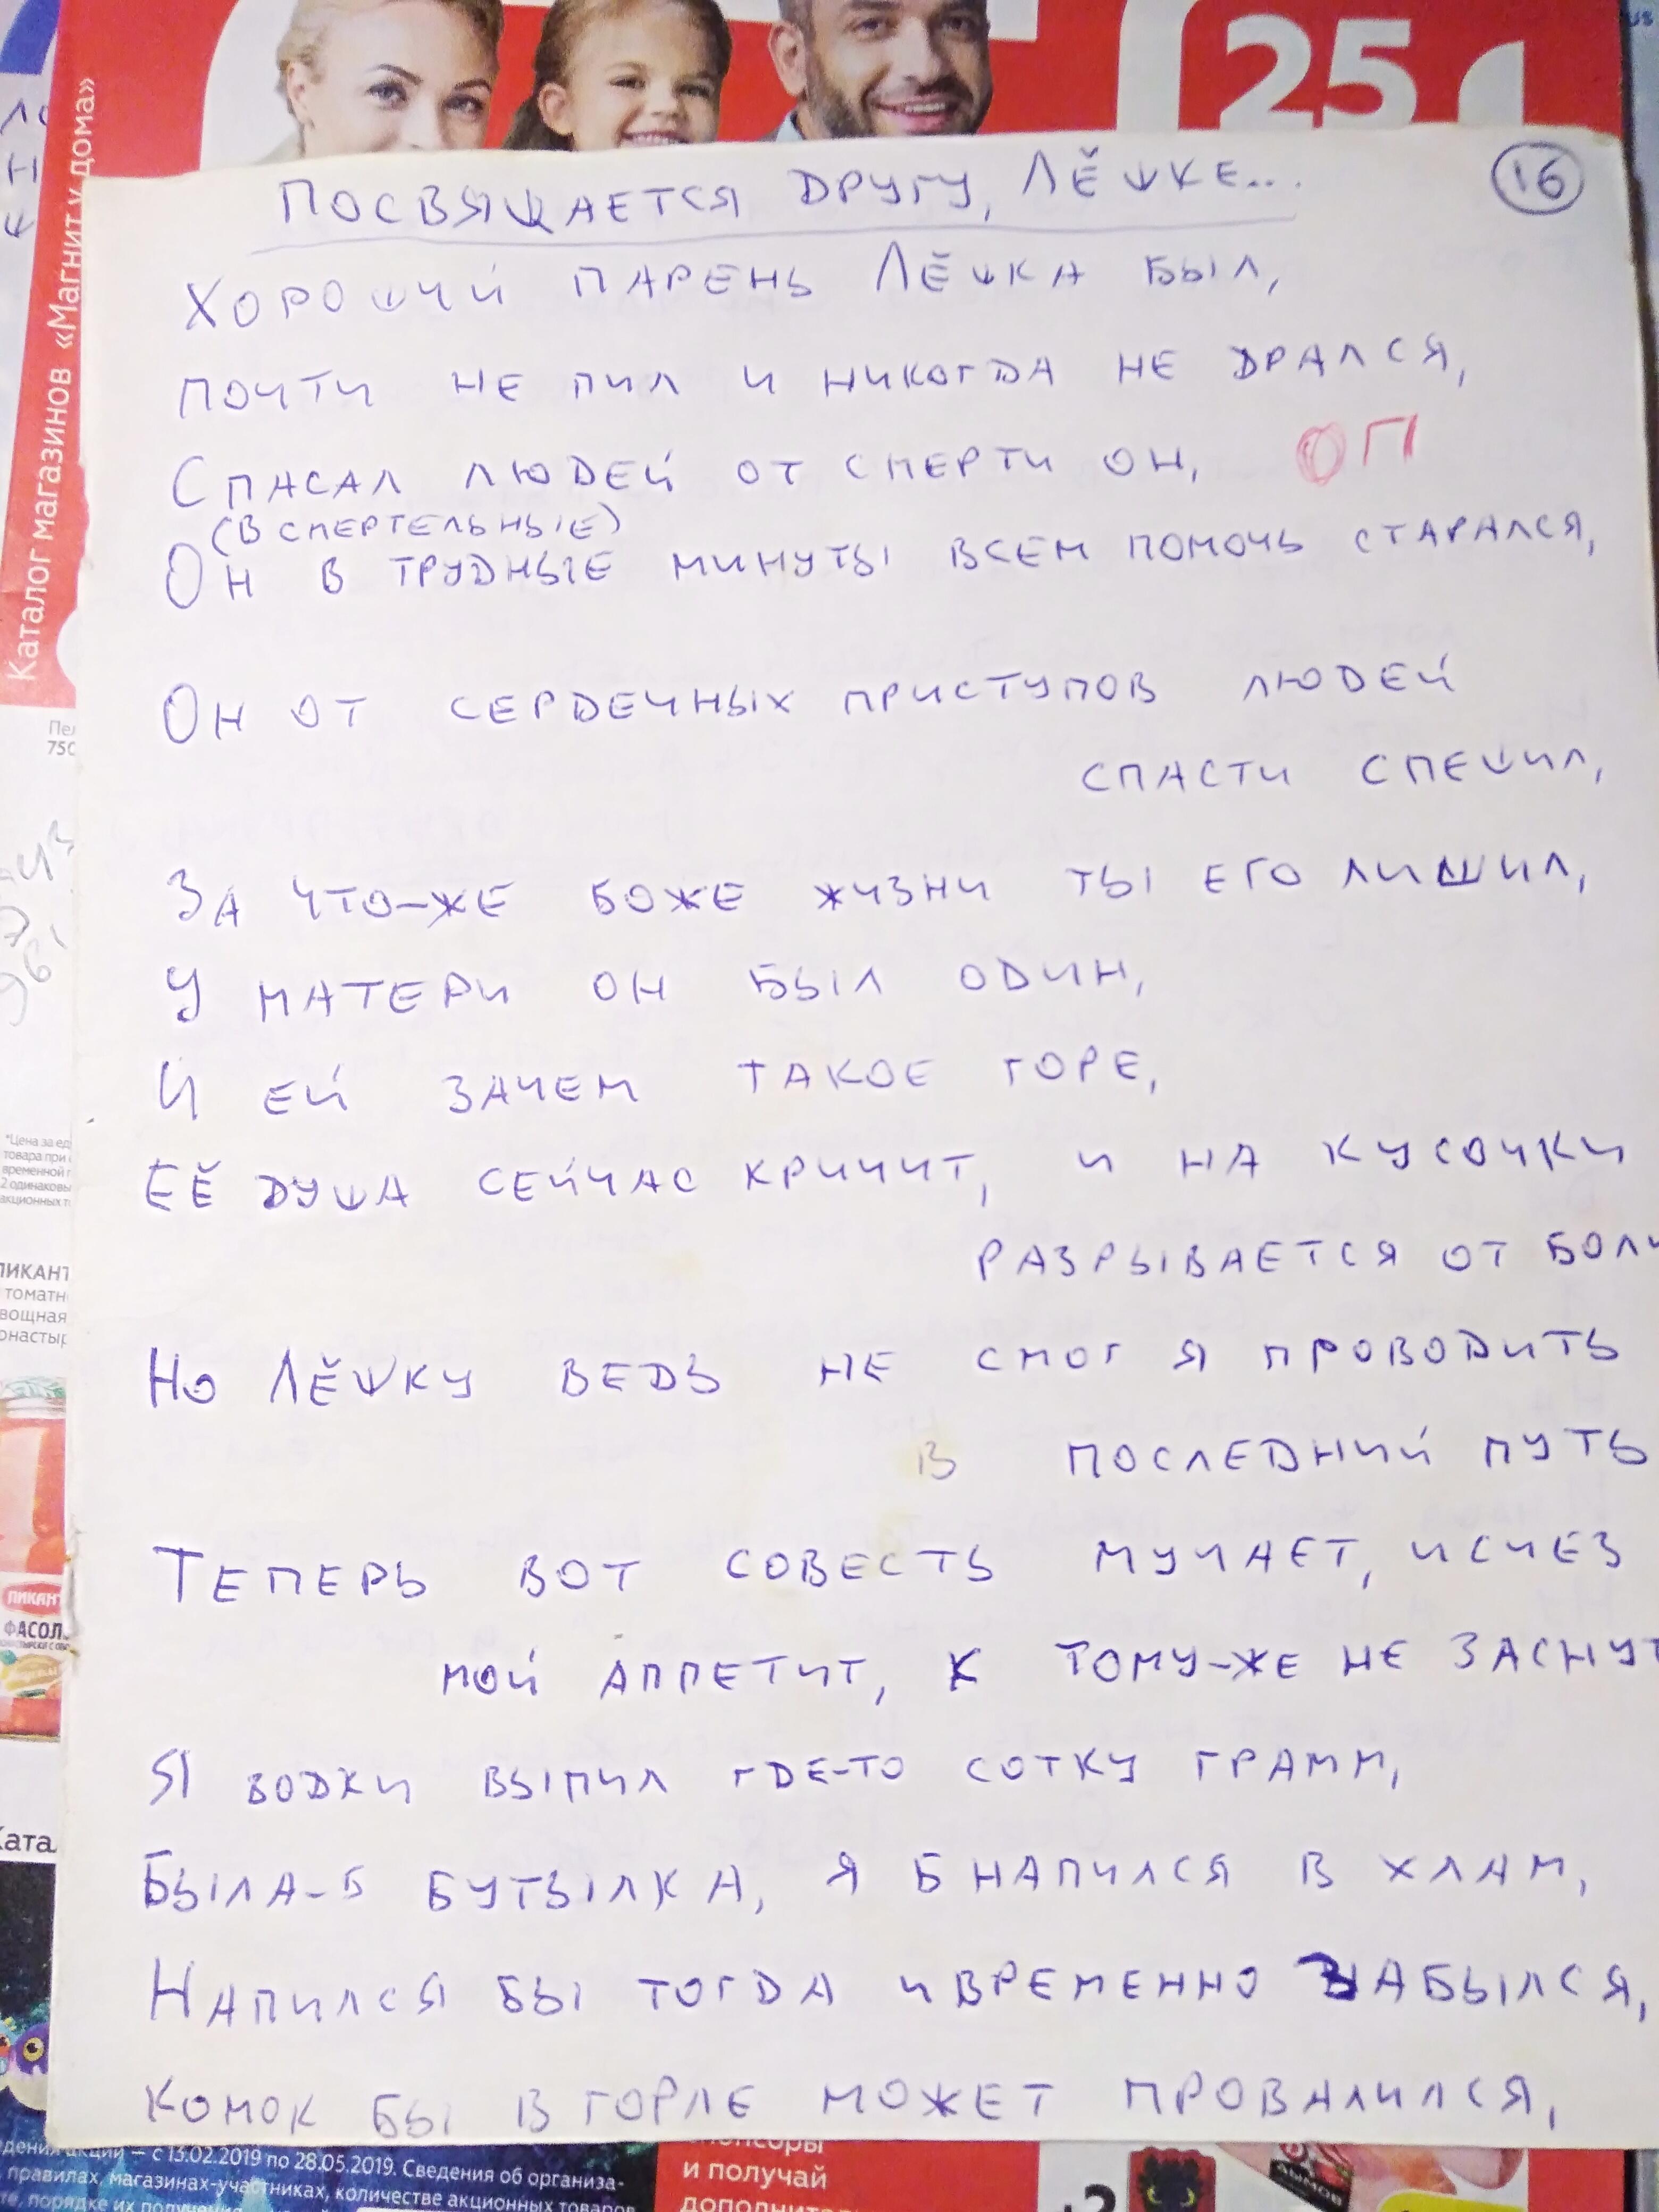 25
Каталог магазинов «Магнит у дома»
ПОСВЯЩАЕТСЯ ДРУГУ, ЛЁШКЕ...
16
ХОРОШИЙ ПАРЕНЬ ЛЁШКА БЫЛ,
ПОЧТИ НЕ ПИЛ И НИКОГДА НЕ ДРАЛСЯ,
СПАСАЛ ЛЮДЕЙ ОТ СМЕРТИ ОН, ОП
(В СМЕРТЕЛЬНЫЕ)
ОН В ТРУДНЫЕ МИНУТЫ ВСЕМ ПОМОЧЬ СТАРАЛСЯ,
ОН ОТ СЕРДЕЧНЫХ ПРИСТУПОВ ЛЮДЕЙ
СПАСТИ СПЕШИЛ,
ЗА ЧТО-ЖЕ БОЖЕ ЖИЗНИ ТЫ ЕГО ЛИШИЛ,
У МАТЕРИ ОН БЫЛ ОДИН,
И ЕЙ ЗАЧЕМ ТАКОЕ ГОРЕ,
ЕЁ ДУША СЕЙЧАС КРИЧИТ, И НА КУСОЧКИ
РАЗРЫВАЕТСЯ ОТ БОЛИ
НО ЛЁШКУ ВЕДЬ НЕ СМОГ Я ПРОВОДИТЬ
В ПОСЛЕДНИЙ ПУТЬ
ТЕПЕРЬ ВОТ СОВЕСТЬ МУЧАЕТ, ИСЧЕЗ
МОЙ АППЕТИТ, К ТОМУ-ЖЕ НЕ ЗАСНУТ
Я ВОДКИ ВЫПИЛ ГДЕ-ТО СОТКУ ГРАММ,
БЫЛА-Б БУТЫЛКА, Я Б НАПИЛСЯ В ХЛАМ,
НАПИЛСЯ БЫ ТОГДА И ВРЕМЕННО ЗАБЫЛСЯ,
КОМОК БЫ В ГОРЛЕ МОЖЕТ ПРОВАЛИЛСЯ,
Пел
750
*Цена за ед
товара при
временной п
2 одинаковы
акционных т
ПИКАНТ
томатн
вощная
онастыр
ПИКАНТ
ФАСОЛ
Ката
дения акции — с 13.02.2019 по 28.05.2019. Сведения об организа-
правилах, магазинах-участниках, количестве акционных товаров
те, порядке их получения
и получай
дополнител
ДЫМОВ